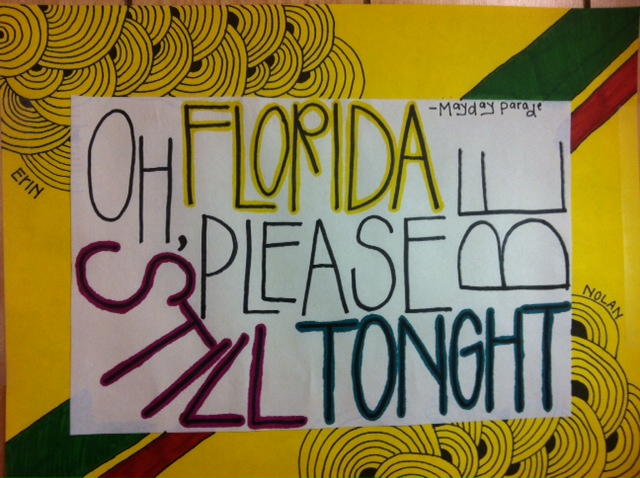 -Mayday parade
OH, FLORIDA
PLEASE BE
STILL TONGHT
ERIN
NOLAN